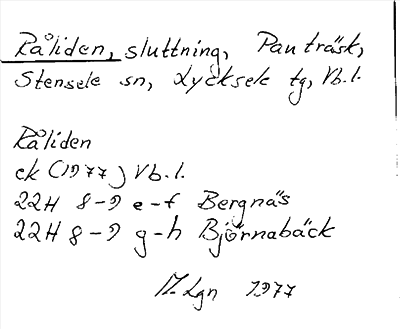 Råliden, sluttning, Pauträsk,
Stensele sn, Lycksele tg, Vb.l.
Råliden
ek (1977) Vb.l.
22H 8-9 e-f Bergnäs
22H 8-9 g-h Björnabäck
M. Lgn 1977